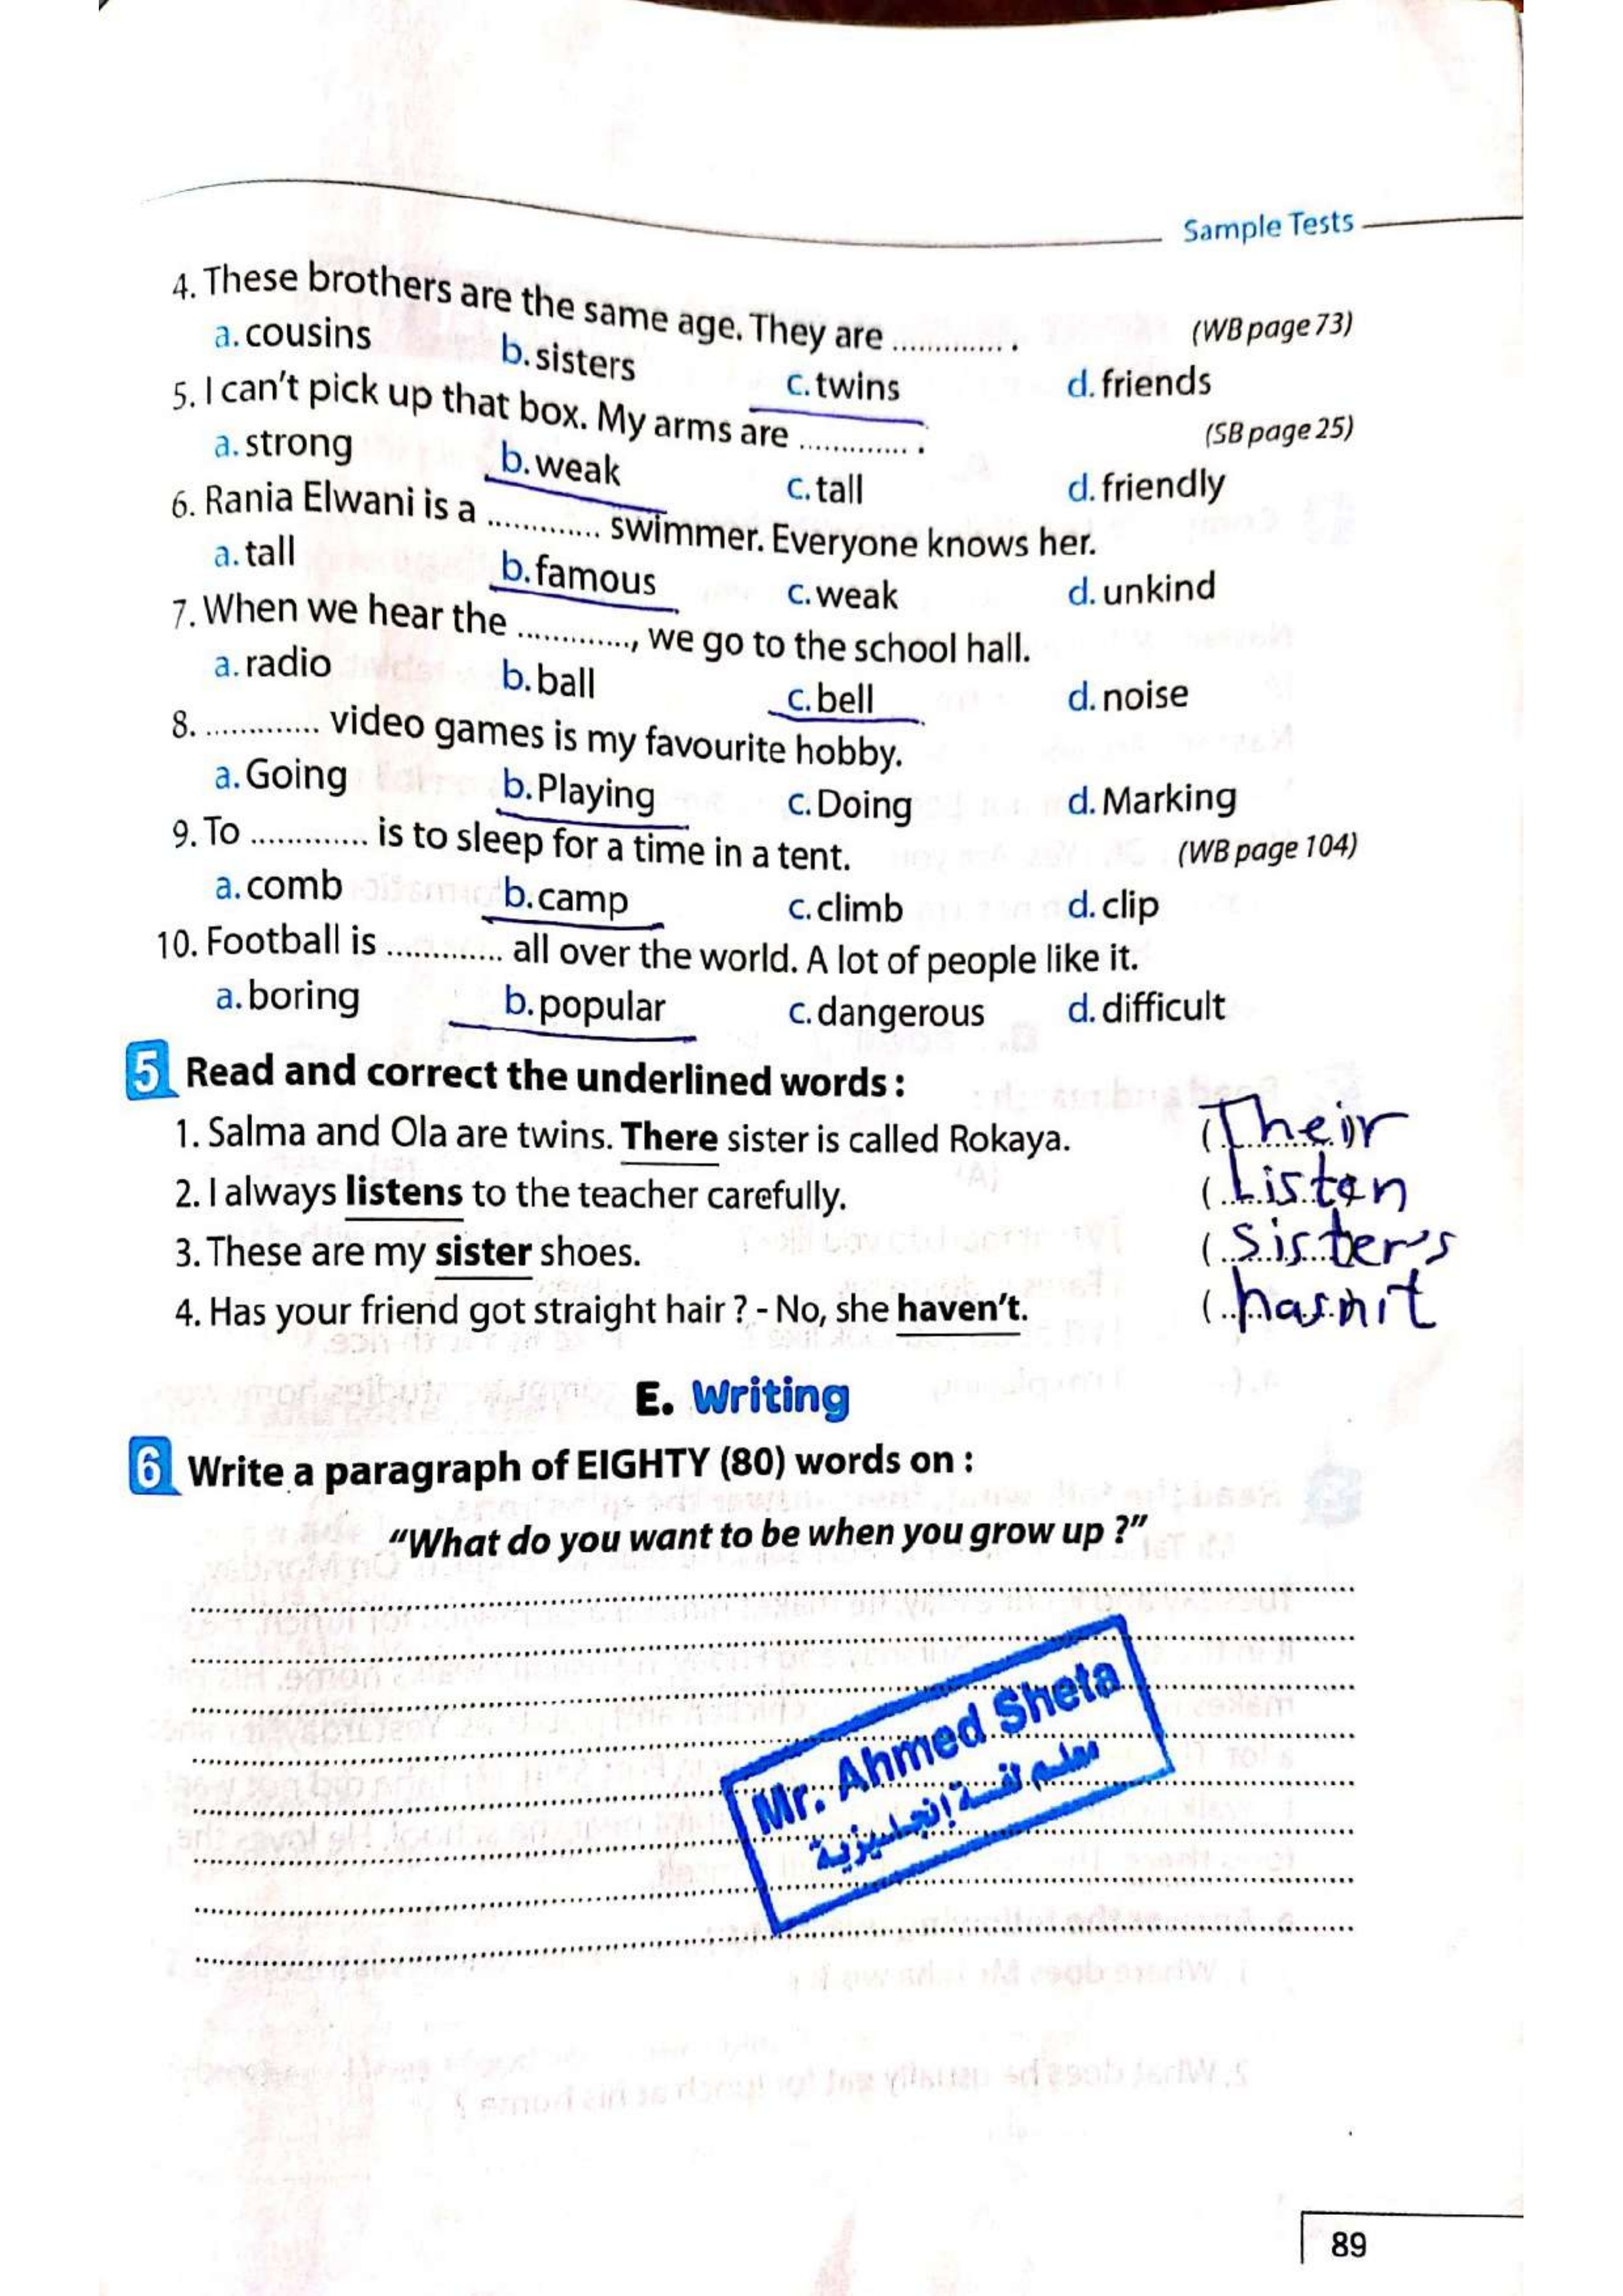 Sample Tests
4. These brothers are the same age. They are ............. . (WB page 73)
a. cousins b. sisters c. twins d. friends
5. I can't pick up that box. My arms are ............. . (SB page 25)
a. strong b. weak c. tall d. friendly
6. Rania Elwani is a ............. swimmer. Everyone knows her.
a. tall b. famous c. weak d. unkind
7. When we hear the ............., we go to the school hall.
a. radio b. ball c. bell d. noise
8. ............. video games is my favourite hobby.
a. Going b. Playing c. Doing d. Marking
9. To ............. is to sleep for a time in a tent. (WB page 104)
a. comb b. camp c. climb d. clip
10. Football is ............. all over the world. A lot of people like it.
a. boring b. popular c. dangerous d. difficult
5 Read and correct the underlined words :
1. Salma and Ola are twins. There sister is called Rokaya. (Their)
2. I always listens to the teacher carefully. (Listen)
3. These are my sister shoes. (Sister's
4. Has your friend got straight hair ? - No, she haven't. (hasn't)
E. Writing
6 Write a paragraph of EIGHTY (80) words on :
"What do you want to be when you grow up ?"
Mr. Ahmed Sheta
معلم لغة إنجليزية
89